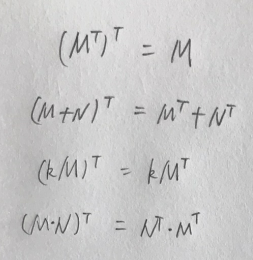 (Mᵀ)ᵀ = M
(M+N)ᵀ = Mᵀ+Nᵀ
(kM)ᵀ = kMᵀ
(M·N)ᵀ = Nᵀ·Mᵀ